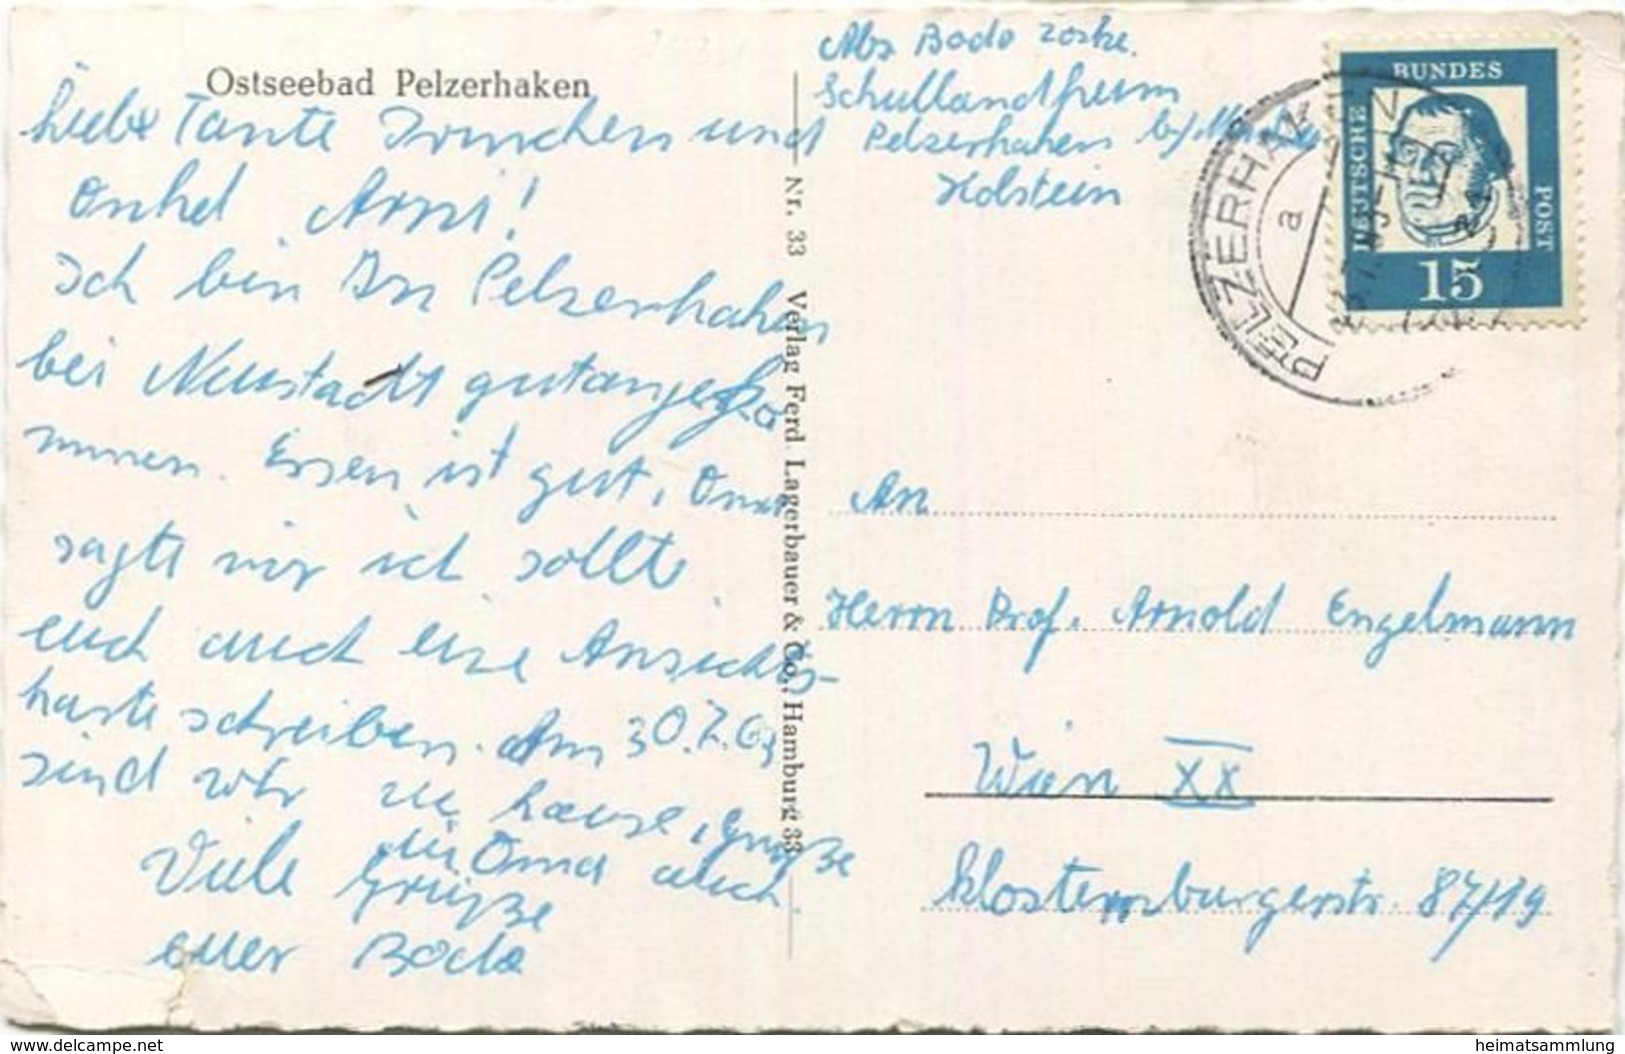 Ostseebad Pelzerhaken
Liebe Tante Irmchen und
Onkel Arni!
Ich bin In Pelzerhaken
bei Neustadt gutangeko
mmen. Essen ist gut, Oma
sagte mir ich sollte
euch auch eine Ansichts-
karte schreiben. Am 30.7.63
sind wir zu hause, Grüße
die Oma auch.
Viele Grüße
euer Bodo
Nr. 33 Verlag Ferd. Lagerbauer & Co., Hamburg 33
Abs Bodo
Schullandheim
Pelzerhaken b/
Holstein
DEUTSCHE BUNDES POST
15
PELZERHAKEN
a
An
Herrn Prof. Arnold Engelmann
Wien XX
Klosterneuburgerstr. 87/19
www.delcampe.net
heimatsammlung